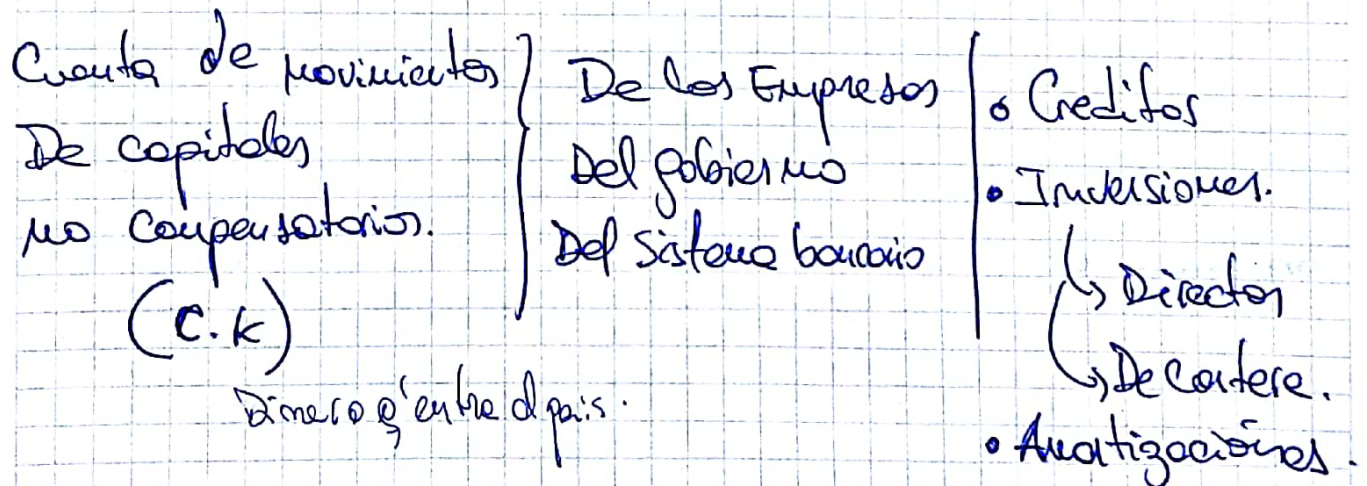 Cuenta de movimientos
De capitales
no compensatorios.
(C.K)
Dinero q' entra al pais.
De las Empresas
Del gobierno
Del Sistema bancario
• Creditos
• Inversiones.
↳ Directas
↳ De Cartera.
• Amortizaciónes.